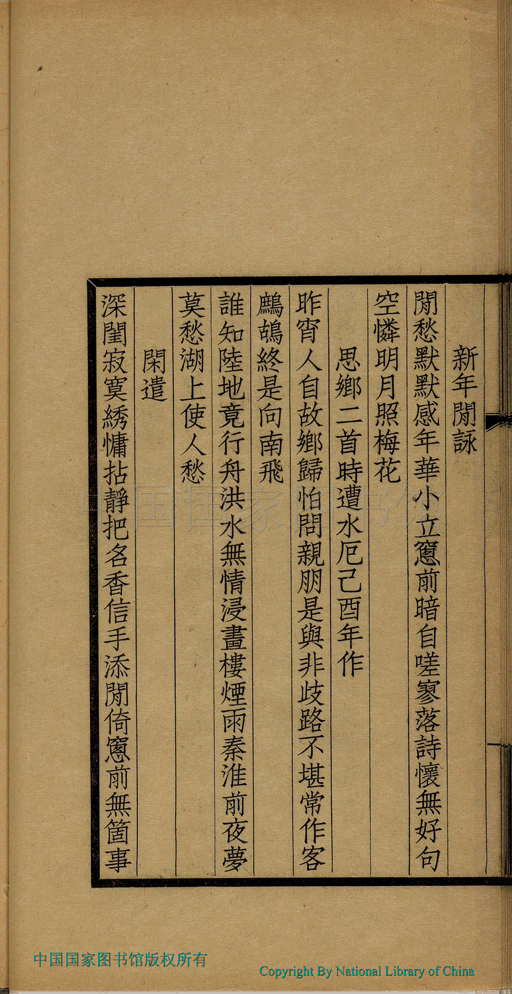 新年閒詠
閒愁默默感年華小立窻前暗自嗟寥落詩懷無好句
空憐明月照梅花
思鄉二首時遭水厄己酉年作
昨宵人自故鄉歸怕問親朋是與非歧路不堪常作客
鷓鴣終是向南飛
誰知陸地竟行舟洪水無情浸畫樓煙雨秦淮前夜夢
莫愁湖上使人愁
閑遣
深閨寂寞綉慵拈靜把名香信手添閒倚窻前無箇事
中国国家图书馆版权所有
Copyright By National Library of China